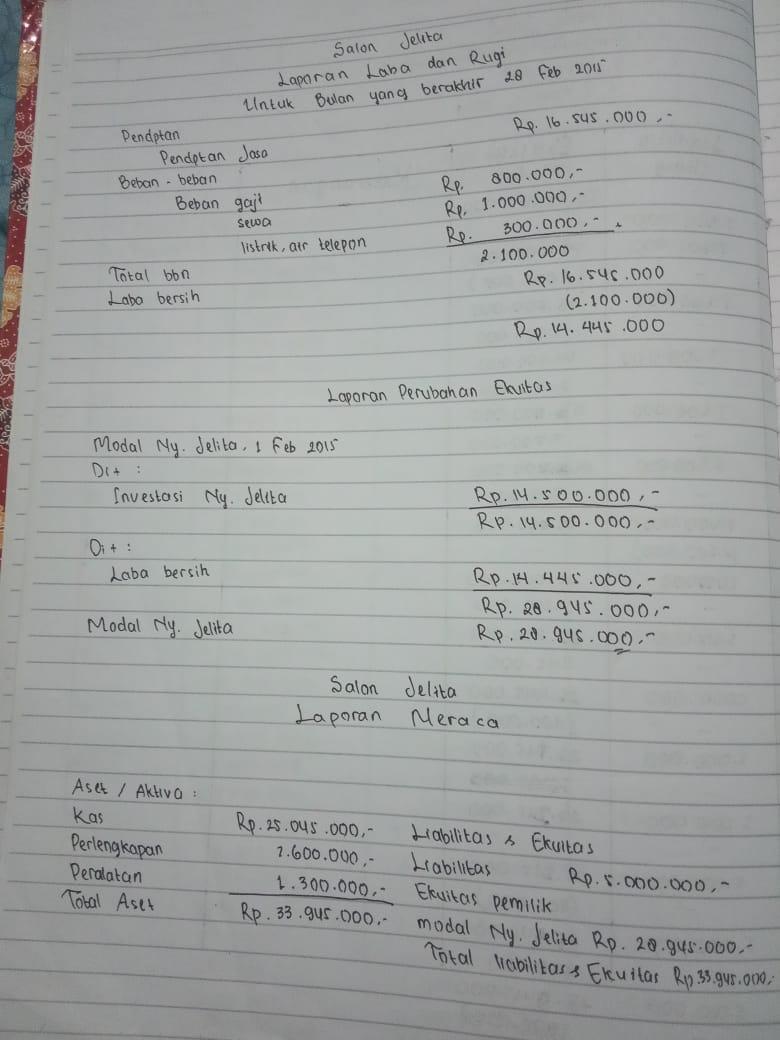 Salon Jelita
Laporan Laba dan Rugi
Untuk Bulan yang berakhir 28 Feb 2015
Pendptan
Pendptan Jasa Rp. 16.545.000,-
Beban - beban
Beban gaji Rp. 800.000,-
sewa Rp. 1.000.000,-
listrik, air telepon Rp. 300.000,- +
Total bbn 2.100.000
Laba bersih Rp. 16.545.000
(2.100.000)
Rp. 14.445.000
Laporan Perubahan Ekuitas
Modal Ny. Jelita, 1 Feb 2015
Di+ :
Investasi Ny. Jelita Rp. 14.500.000,-
Rp. 14.500.000,-
Di+ :
Laba bersih Rp. 14.445.000,-
Rp. 28.945.000,-
Modal Ny. Jelita Rp. 28.945.000,-
Salon Jelita
Laporan Neraca
Aset / Aktiva :
Kas Rp. 25.045.000,- Liabilitas & Ekuitas
Perlengkapan 7.600.000,- Liabilitas Rp. 5.000.000,-
Peralatan 1.300.000,- Ekuitas pemilik
Total Aset Rp. 33.945.000,- modal Ny. Jelita Rp. 28.945.000,-
Total liabilitas & Ekuitas Rp 33.945.000,-